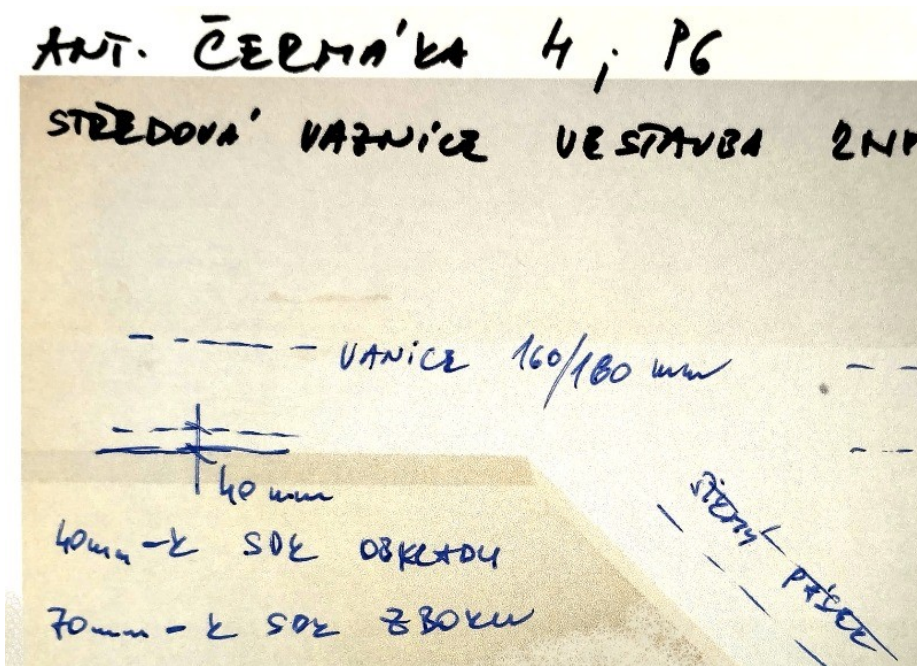 ANT. ČERMÁKA 4; P6
STŘEDOVÁ VAZNICE VESTAVBA 2NP
VANICE 160/180 mm
40 mm
40mm - K SDK OBKLADU
70mm - K SDK ZBOKU
ŠIKMÝ PÁSEK